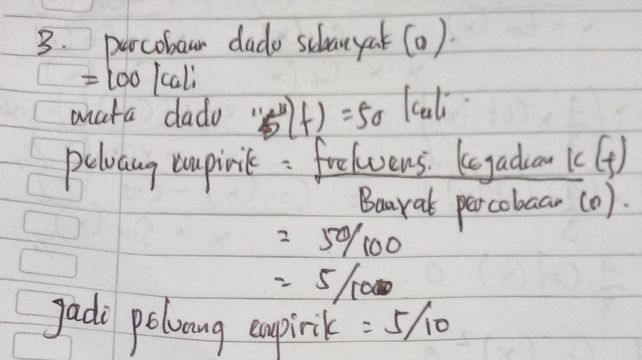 3. percobaan dadu sebanyak (o).
= 100 kali
mata dadu "5" (f) = 50 kali
peluang empirik = frekuensi kegadian K (f)
Banyak percobaan (o).
= 50/100
= 5/10
Jadi peluang empirik = 5/10